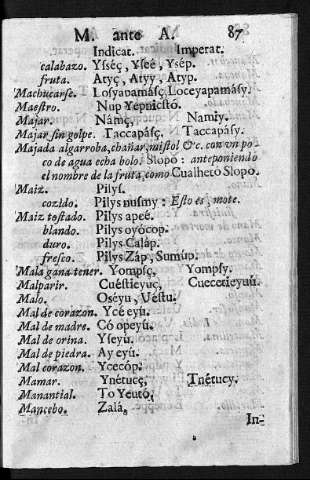 M. ante A. 87
Indicat. Imperat.
calabazo. Ysséç, Yseé, Ysép.
fruta. Atyç, Atyy, Atyp.
Machucarse. Losyapamásç, Loceyapamásy.
Maestro. Nup Yepnicstó.
Majar. Námç, Namíy.
Majar sin golpe. Taccapásç, Taccapásy.
Majada algarroba, chañar, mistol &c. con vn po-
co de agua echa bolo. Slopó: anteponiendo
el nombre de la fruta, como Cualhetó Slopó.
Maiz. Pilys.
cozido. Pilys nusmy: Esto es, mote.
Maiz tostado. Pilys apeé.
blando. Pilys oyócop.
duro. Pilys Caláp.
fresco. Pilys Záp, Sumúp.
Mala gana tener. Yompsç, Yompsy.
Malparir. Cuéstieyuç, Cuecetieyuú.
Malo. Oséyu, Uéstu.
Mal de corazon. Ycé eyú.
Mal de madre. Có opeyú.
Mal de orina. Yseyú.
Mal de piedra. Ay eyú.
Mal corazon. Ycecóp.
Mamar. Ynétucç, Tnétucy.
Manantial. To Yeutó,
Mancebo. Zalá,
In-